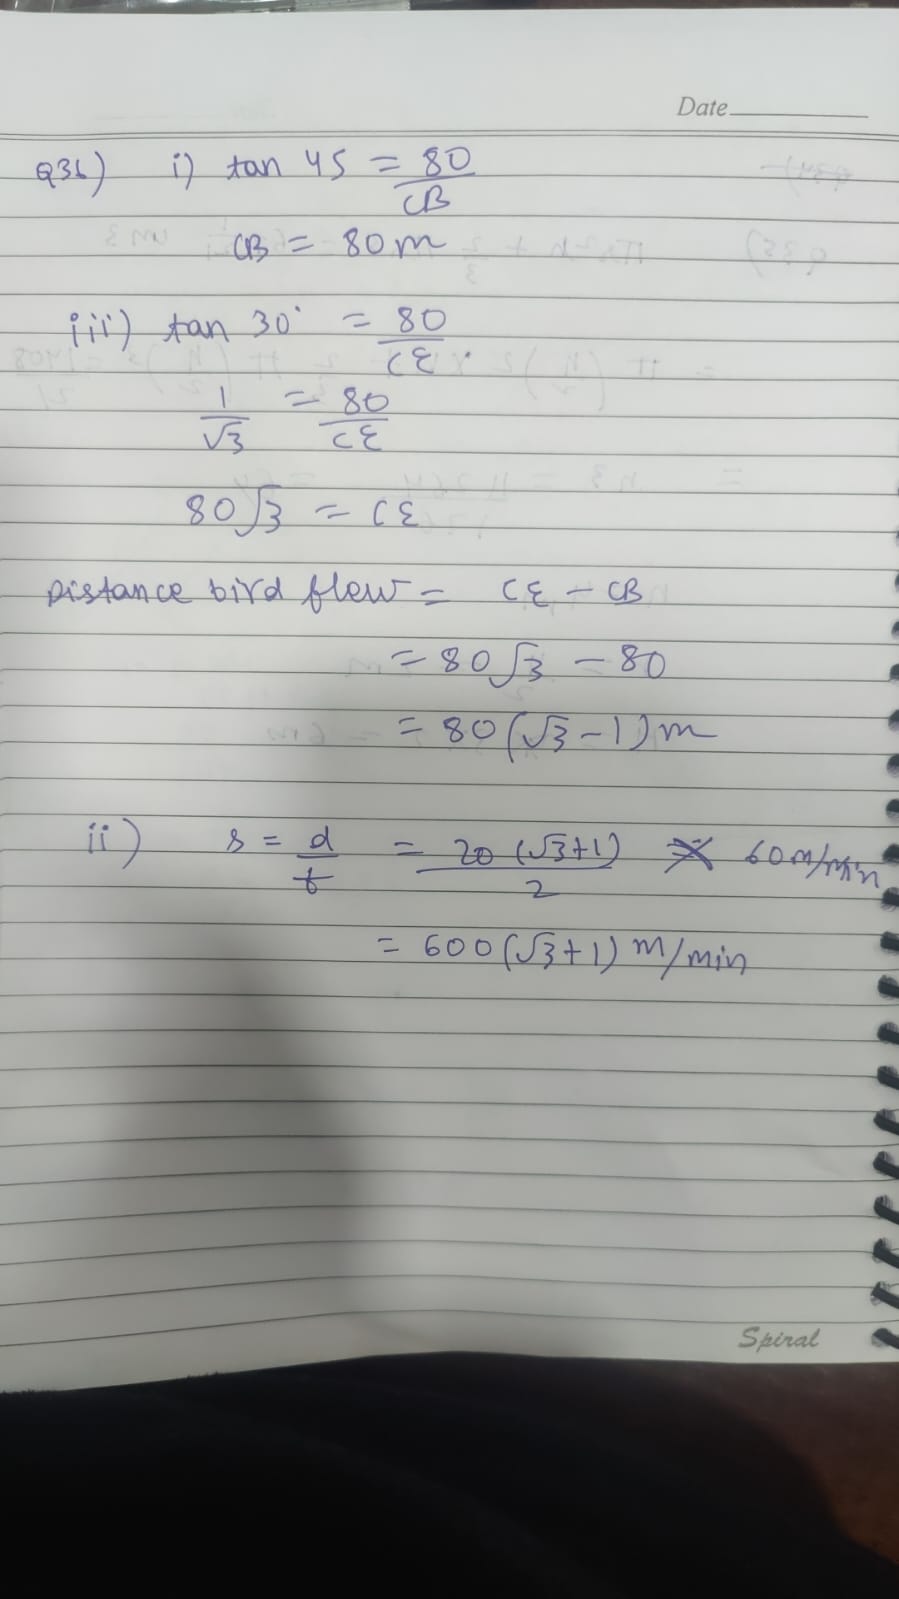 Date
Q36) i) tan 45 = 80/CB
CB = 80m
iii) tan 30° = 80/CE
1/√3 = 80/CE
80√3 = CE
Distance bird flew = CE - CB
= 80√3 - 80
= 80(√3-1)m
ii) s = d/t = 20(√3+1)/2 × 60m/min
= 600(√3+1) m/min
Spiral